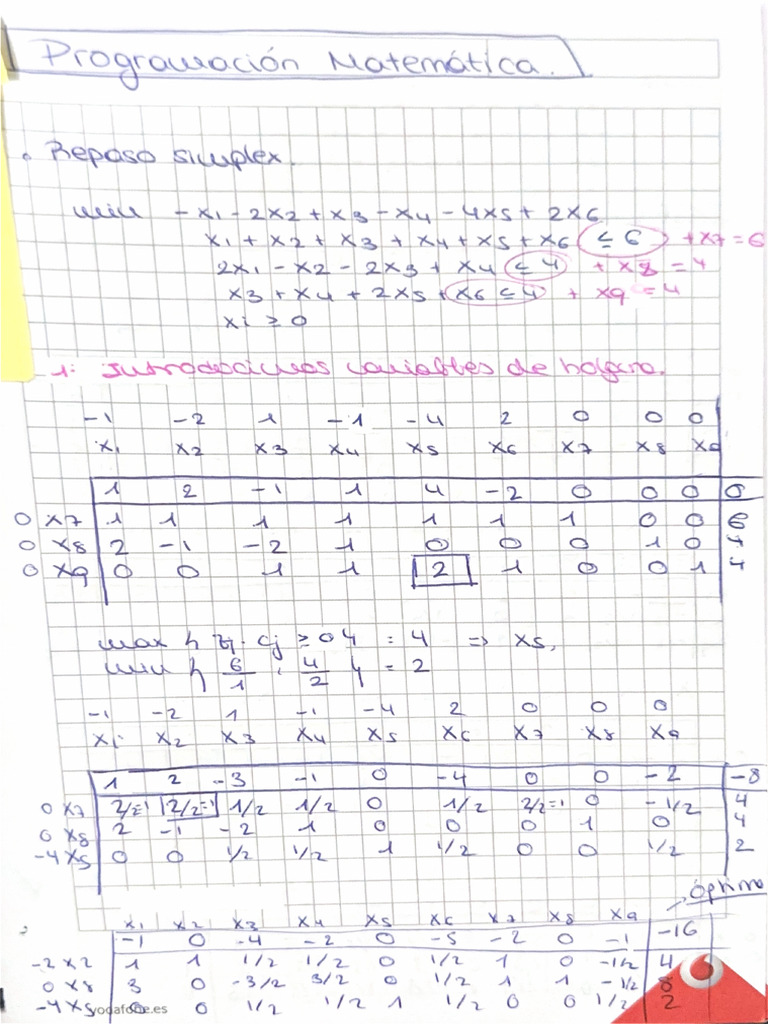 Programación Matemática.
. Repaso simplex.
min -x1 - 2x2 + x3 - x4 - 4x5 + 2x6
x1 + x2 + x3 + x4 + x5 + x6 ≤ 6 + x7 = 6
2x1 - x2 - 2x3 + x4 ≤ 4 + x8 = 4
x3 + x4 + 2x5 + x6 ≤ 4 + x9 = 4
xi ≥ 0
1: Introducimos variables de holgura.
-1 -2 1 -1 -4 2 0 0 0
x1 x2 x3 x4 x5 x6 x7 x8 x9
1 2 -1 1 4 -2 0 0 0 0
0 x7 1 1 1 1 1 1 1 0 0 6
0 x8 2 -1 -2 1 0 0 0 1 0 4
0 x9 0 0 1 1 2 1 0 0 1 4
max { zj - cj ≥ 0 } = 4 => x5,
min { 6/1 , 4/2 } = 2
-1 -2 1 -1 -4 2 0 0 0
x1 x2 x3 x4 x5 x6 x7 x8 x9
1 2 -3 -1 0 -4 0 0 -2 -8
0 x7 2/2=1 2/2=1 1/2 1/2 0 1/2 2/2=1 0 -1/2 4
0 x8 2 -1 -2 1 0 0 0 1 0 4
-4 x5 0 0 1/2 1/2 1 1/2 0 0 1/2 2
óptimo
x1 x2 x3 x4 x5 x6 x7 x8 x9
-1 0 -4 -2 0 -5 -2 0 -1 -16
-2 x2 1 1 1/2 1/2 0 1/2 1 0 -1/2 4
0 x8 3 0 -3/2 3/2 0 1/2 1 1 -1/2 8
-4 x5 0 0 1/2 1/2 1 1/2 0 0 1/2 2
vodafone.es